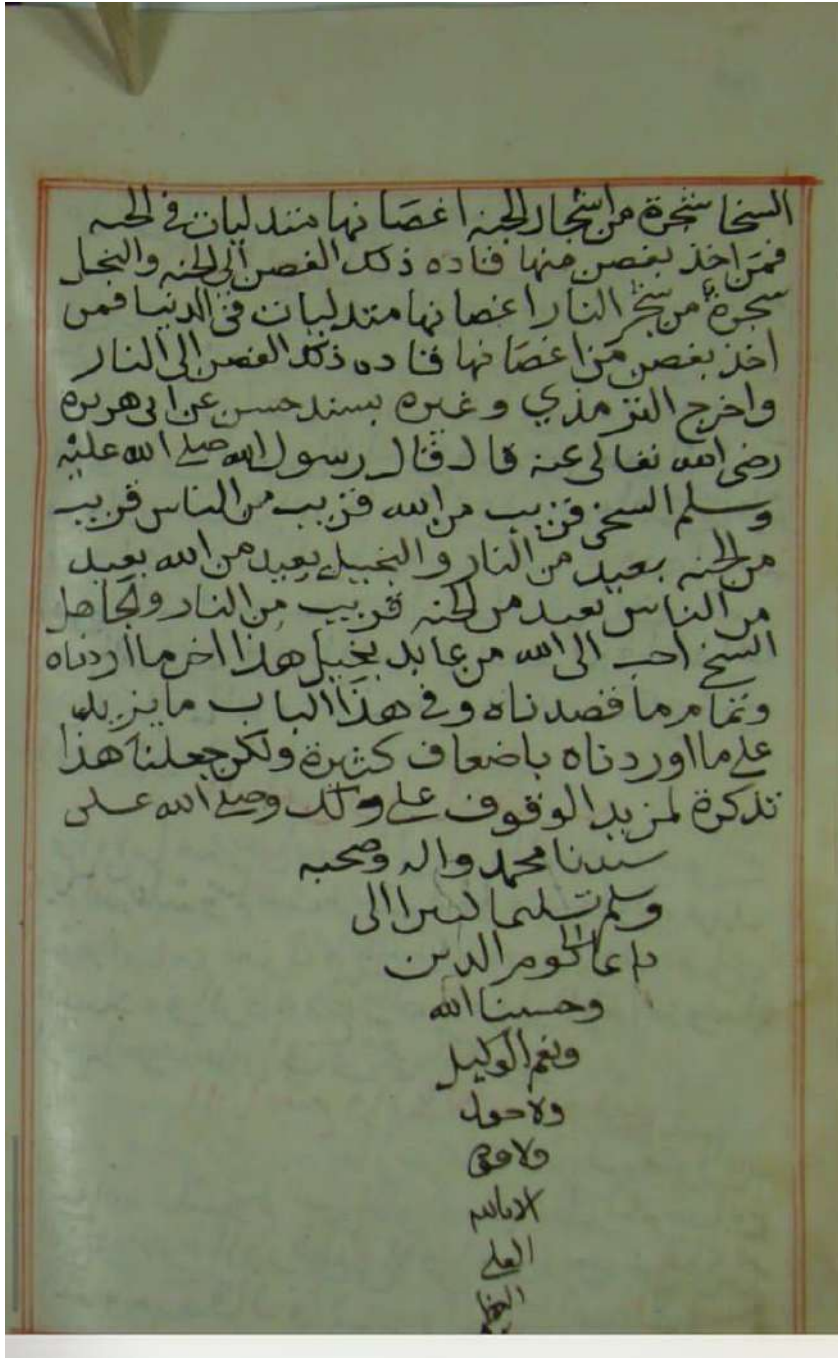 السخا شجرة من اشجار الجنه اغصانها متدليات في الجنه
فمن اخذ بغصن منها قاده ذلك الغصن الى الجنه والبخل
شجرة من شجر النار اغصانها متدليات في الدنيا فمن
اخذ بغصن من اغصانها قاده ذلك الغصن الى النار
واخرج الترمذي وغيره بسند حسن عن ابى هريرة
رضى الله تعالى عنه قال قال رسول الله صلى الله عليه
وسلم السخى قريب من الله قريب من الناس قريب
من الجنه بعيد من النار والبخيل بعيد من الله بعيد
من الناس بعيد من الجنه قريب من النار والجاهل
السخي احب الى الله من عابد بخيل هذا اخر ما اردناه
وتمام ما قصدناه وفي هذا الباب ما يزيد
على ما اوردناه باضعاف كثيرة ولكن جعلنا هذا
تذكرة لمزيد الوقوف على وصلى الله على
سيدنا محمد واله وصحبه
وسلم تسليما كثيرا الى
يوم الدين
وحسبنا الله
ونعم الوكيل
ولا حول
ولا قوة
الا بالله
العلى